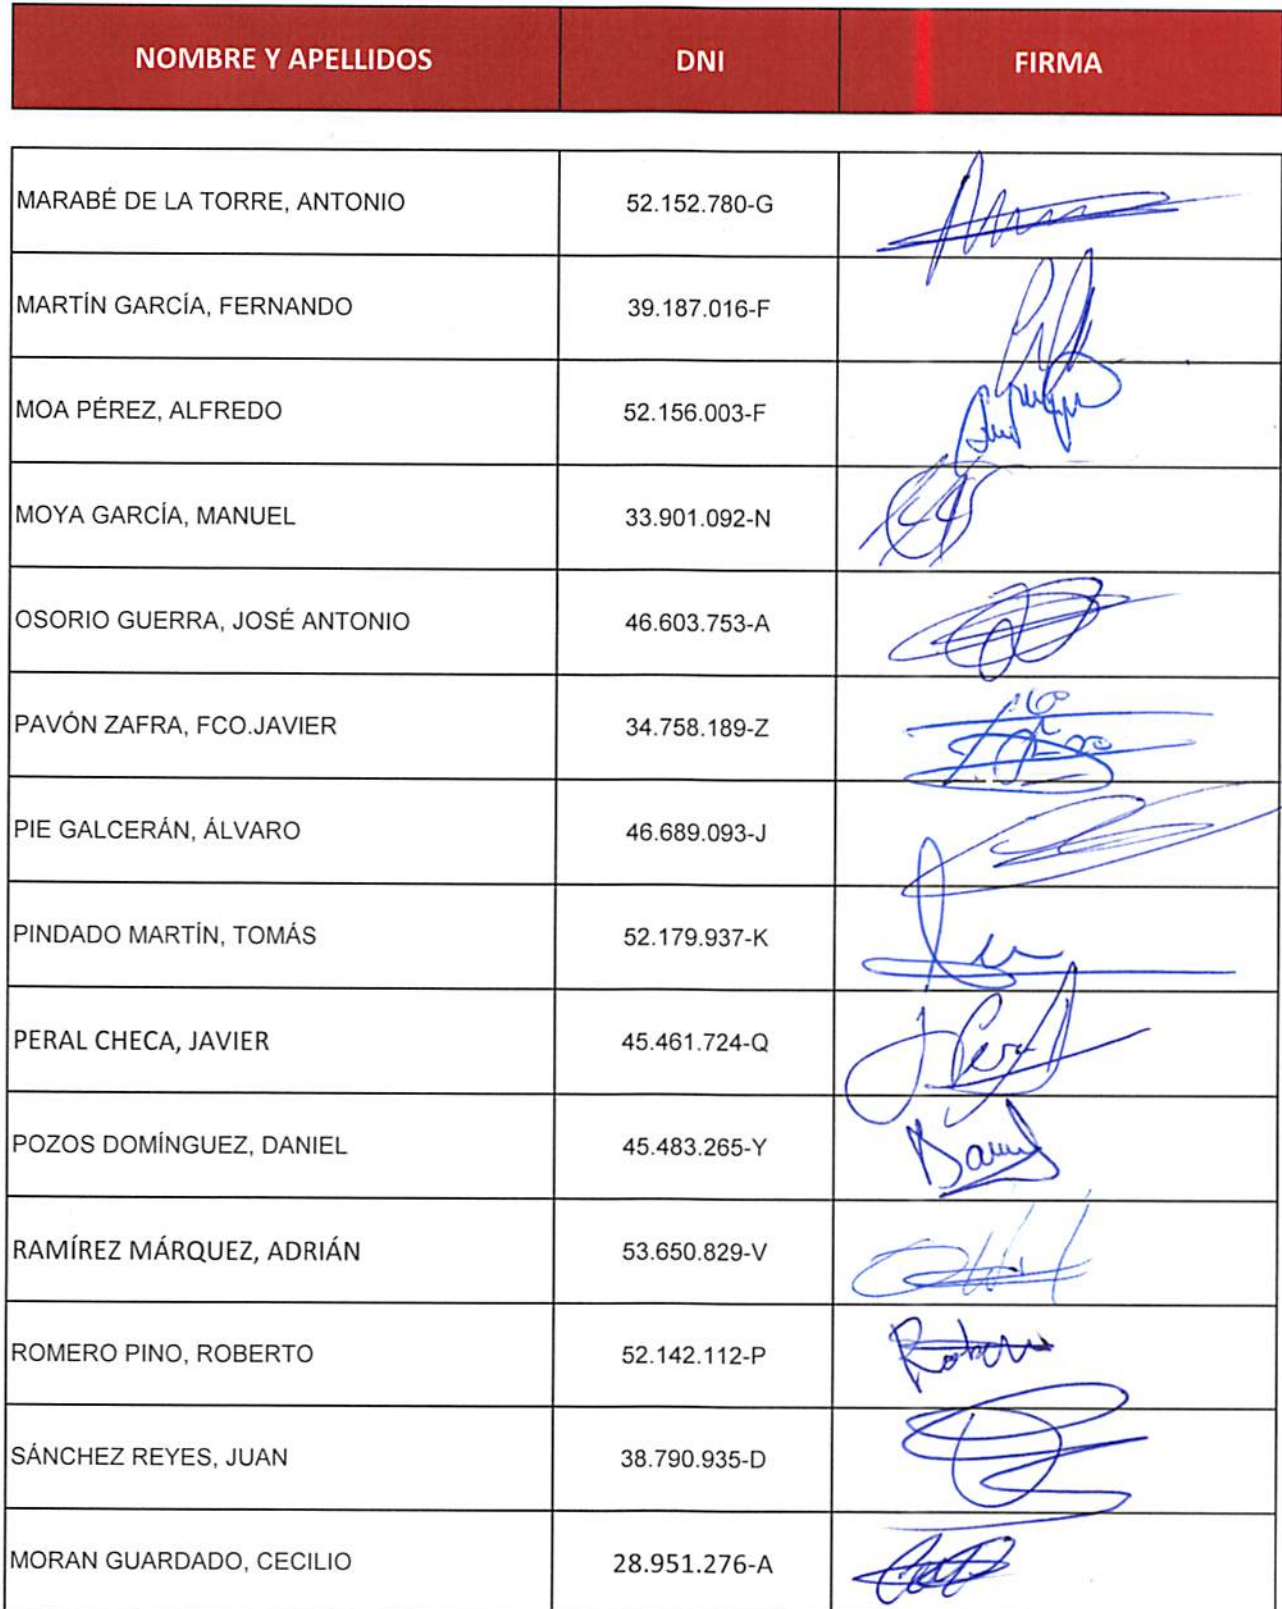 NOMBRE Y APELLIDOS DNI FIRMA
MARABÉ DE LA TORRE, ANTONIO 52.152.780-G
MARTÍN GARCÍA, FERNANDO 39.187.016-F
MOA PÉREZ, ALFREDO 52.156.003-F
MOYA GARCÍA, MANUEL 33.901.092-N
OSORIO GUERRA, JOSÉ ANTONIO 46.603.753-A
PAVÓN ZAFRA, FCO.JAVIER 34.758.189-Z
PIE GALCERÁN, ÁLVARO 46.689.093-J
PINDADO MARTÍN, TOMÁS 52.179.937-K
PERAL CHECA, JAVIER 45.461.724-Q
POZOS DOMÍNGUEZ, DANIEL 45.483.265-Y
RAMÍREZ MÁRQUEZ, ADRIÁN 53.650.829-V
ROMERO PINO, ROBERTO 52.142.112-P
SÁNCHEZ REYES, JUAN 38.790.935-D
MORAN GUARDADO, CECILIO 28.951.276-A